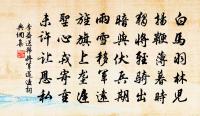 白馬羽林兒
揚鞭薄暮時
獨將輕騎出
暗與伏兵期
雨雪移軍遠
旌旗上壟遲
聖心戎寄重
未許讓恩私
李益送韓將軍還邊詩
典網集